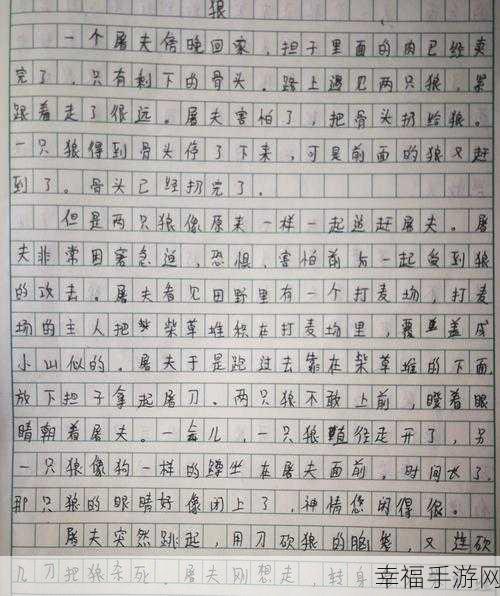 狼
一个屠夫傍晚回家，担子里面的肉已经卖
完了，只有剩下的骨头。路上遇见两只狼，紧
跟着走了很远。屠夫害怕了，把骨头扔给狼。
一只狼得到骨头停了下来，可是前面的狼又赶
到了。骨头已经扔完了。
但是两只狼像原来一样一起追赶屠夫。屠
夫非常困窘急迫，恐惧，害怕前后一起受到狼
的攻击。屠夫看见田野里有一个打麦场，打麦
场的主人把柴草堆积在打麦场里，覆盖成
小山似的。屠夫于是跑过去靠在柴草堆的下面，
放下担子拿起屠刀。两只狼不敢上前，瞪着眼
睛朝着屠夫。一会儿，一只狼径直走开了，另
一只狼像狗一样的蹲坐在屠夫面前。时间长了，
那只狼的眼睛好像闭上了，神情悠闲得很。
屠夫突然跳起，用刀砍狼的脑袋，又连砍
几刀把狼杀死。屠夫刚想走，转身
幸福手游网